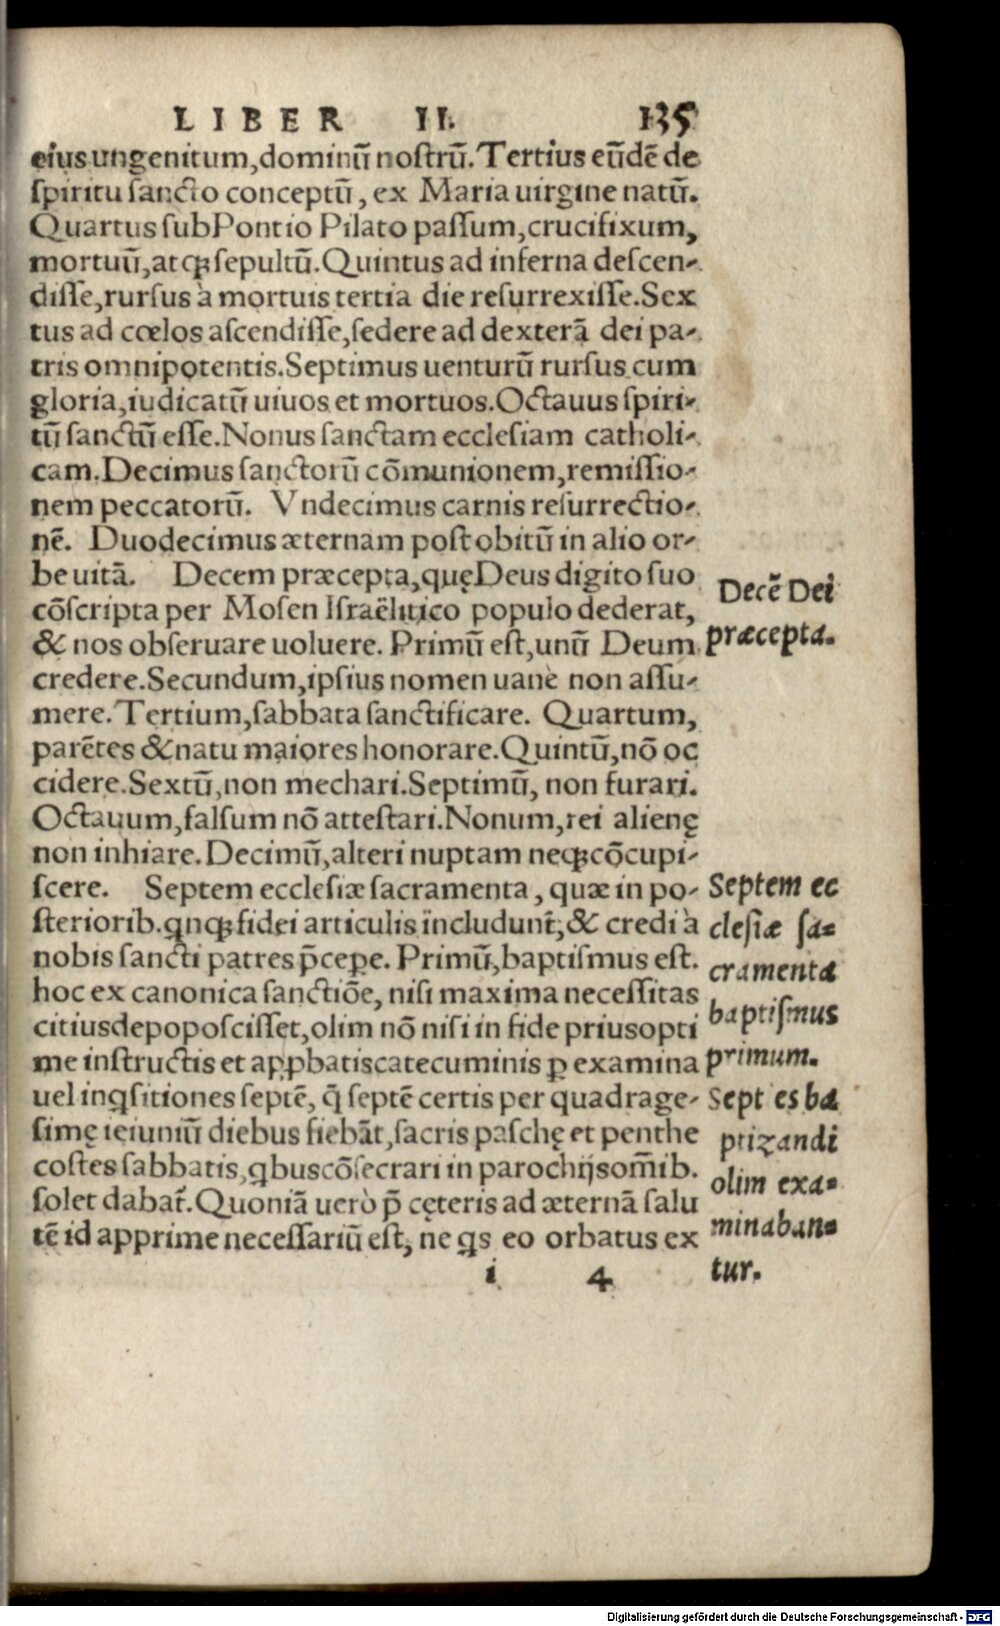 LIBER II. 135
eius ungenitum, dominū nostrū. Tertius eūdē de
spiritu sancto conceptū, ex Maria uirgine natū.
Quartus sub Pontio Pilato passum, crucifixum,
mortuū, atqꝫ sepultū. Quintus ad inferna descen-
disse, rursus à mortuis tertia die resurrexisse. Sex
tus ad cœlos ascendisse, sedere ad dexterā dei pa-
tris omnipotentis. Septimus uenturū rursus cum
gloria, iudicatū uiuos et mortuos. Octauus spiri-
tū sanctū esse. Nonus sanctam ecclesiam catholi-
cam. Decimus sanctorū cōmunionem, remissio-
nem peccatorū. Vndecimus carnis resurrectio-
nē. Duodecimus æternam post obitū in alio or-
be uitā. Decem præcepta, quę Deus digito suo
cōscripta per Mosen Israëlitico populo dederat,
& nos obseruare uoluere. Primū est, unū Deum
credere. Secundum, ipsius nomen uanè non assu-
mere. Tertium, sabbata sanctificare. Quartum,
parētes & natu maiores honorare. Quintū, nō oc
cidere. Sextū, non mechari. Septimū, non furari.
Octauum, falsum nō attestari. Nonum, rei alienę
non inhiare. Decimū, alteri nuptam neqꝫ cōcupi-
scere. Septem ecclesiæ sacramenta, quæ in po-
steriorib. qnqꝫ fidei articulis includunt̄, & credi à
nobis sancti patres p̄cepe. Primū, baptismus est.
hoc ex canonica sanctiōe, nisi maxima necessitas
citius depoposcisset, olim nō nisi in fide prius opti
me instructis et apꝓbatis catecuminis ꝑ examina
uel inqsitiones septē, q̄ septē certis per quadrage-
simę ieiuniū diebus fiebāt, sacris paschę et penthe
costes sabbatis, qbus cōsecrari in parochijs om̄ib.
solet dabat̄. Quoniā uerò p̄ cęteris ad æternā salu
tē id apprime necessariū est, ne qs eo orbatus ex
i 4
Decē Dei
præcepta.
Septem ec
clesiæ sa-
cramenta
baptismus
primum.
Septies ba
ptizandi
olim exa-
minaban-
tur.
Digitalisierung gefördert durch die Deutsche Forschungsgemeinschaft - DFG